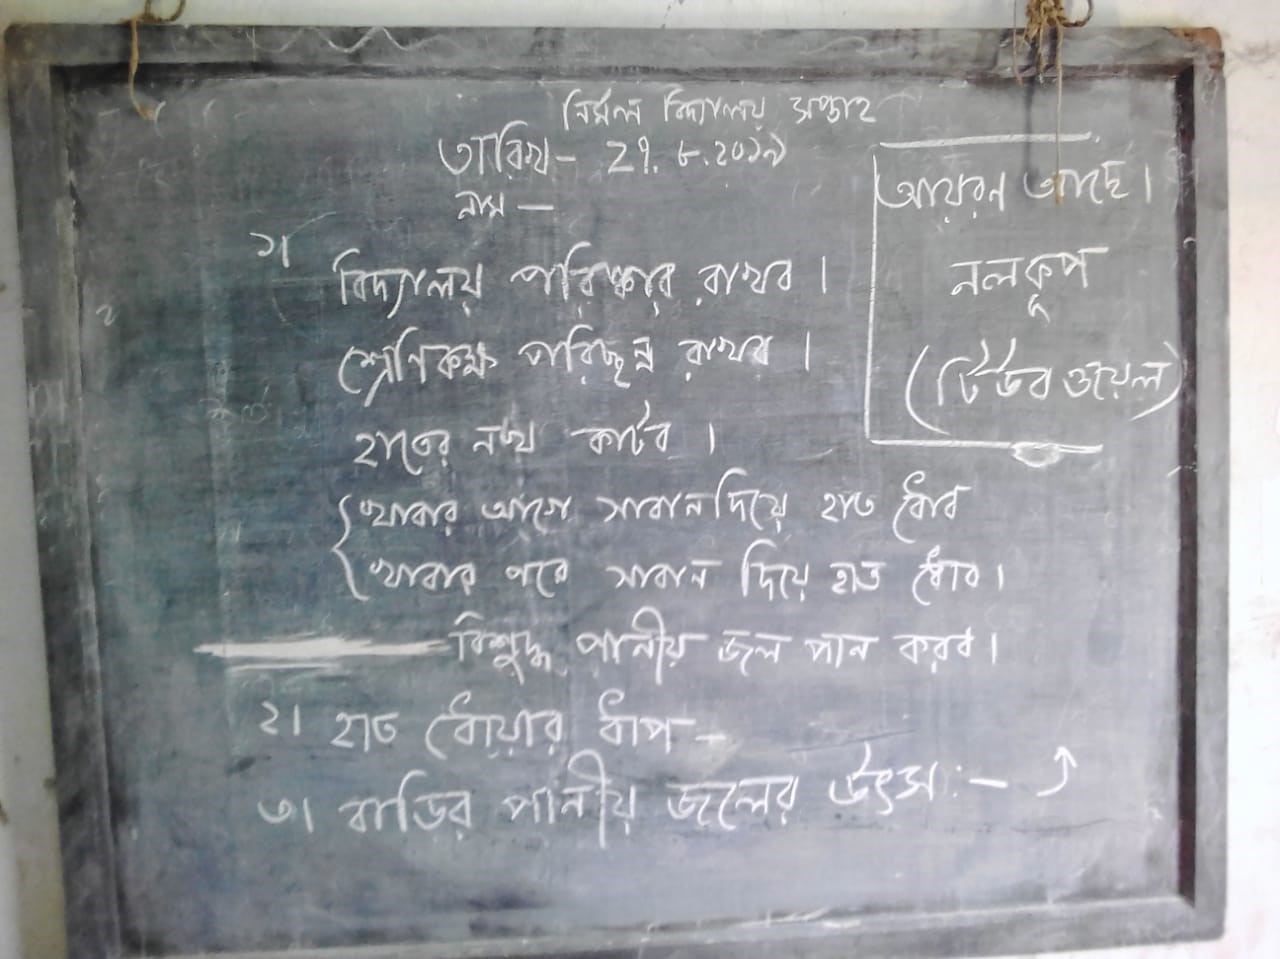 নির্মল বিদ্যালয় সপ্তাহ
তারিখ - ২৭.৮.২০১৯
নাম —
১।
বিদ্যালয় পরিষ্কার রাখব ।
শ্রেণিকক্ষ পরিচ্ছন্ন রাখব ।
হাতের নখ কাটব ।
খাবার আগে সাবান দিয়ে হাত ধোব
খাবার পরে সাবান দিয়ে হাত ধোব ।
বিশুদ্ধ পানীয় জল পান করব ।
২। হাত ধোয়ার ধাপ —
৩। বাড়ির পানীয় জলের উৎস :—
আয়রন আছে ।
নলকূপ
(টিউব ওয়েল)